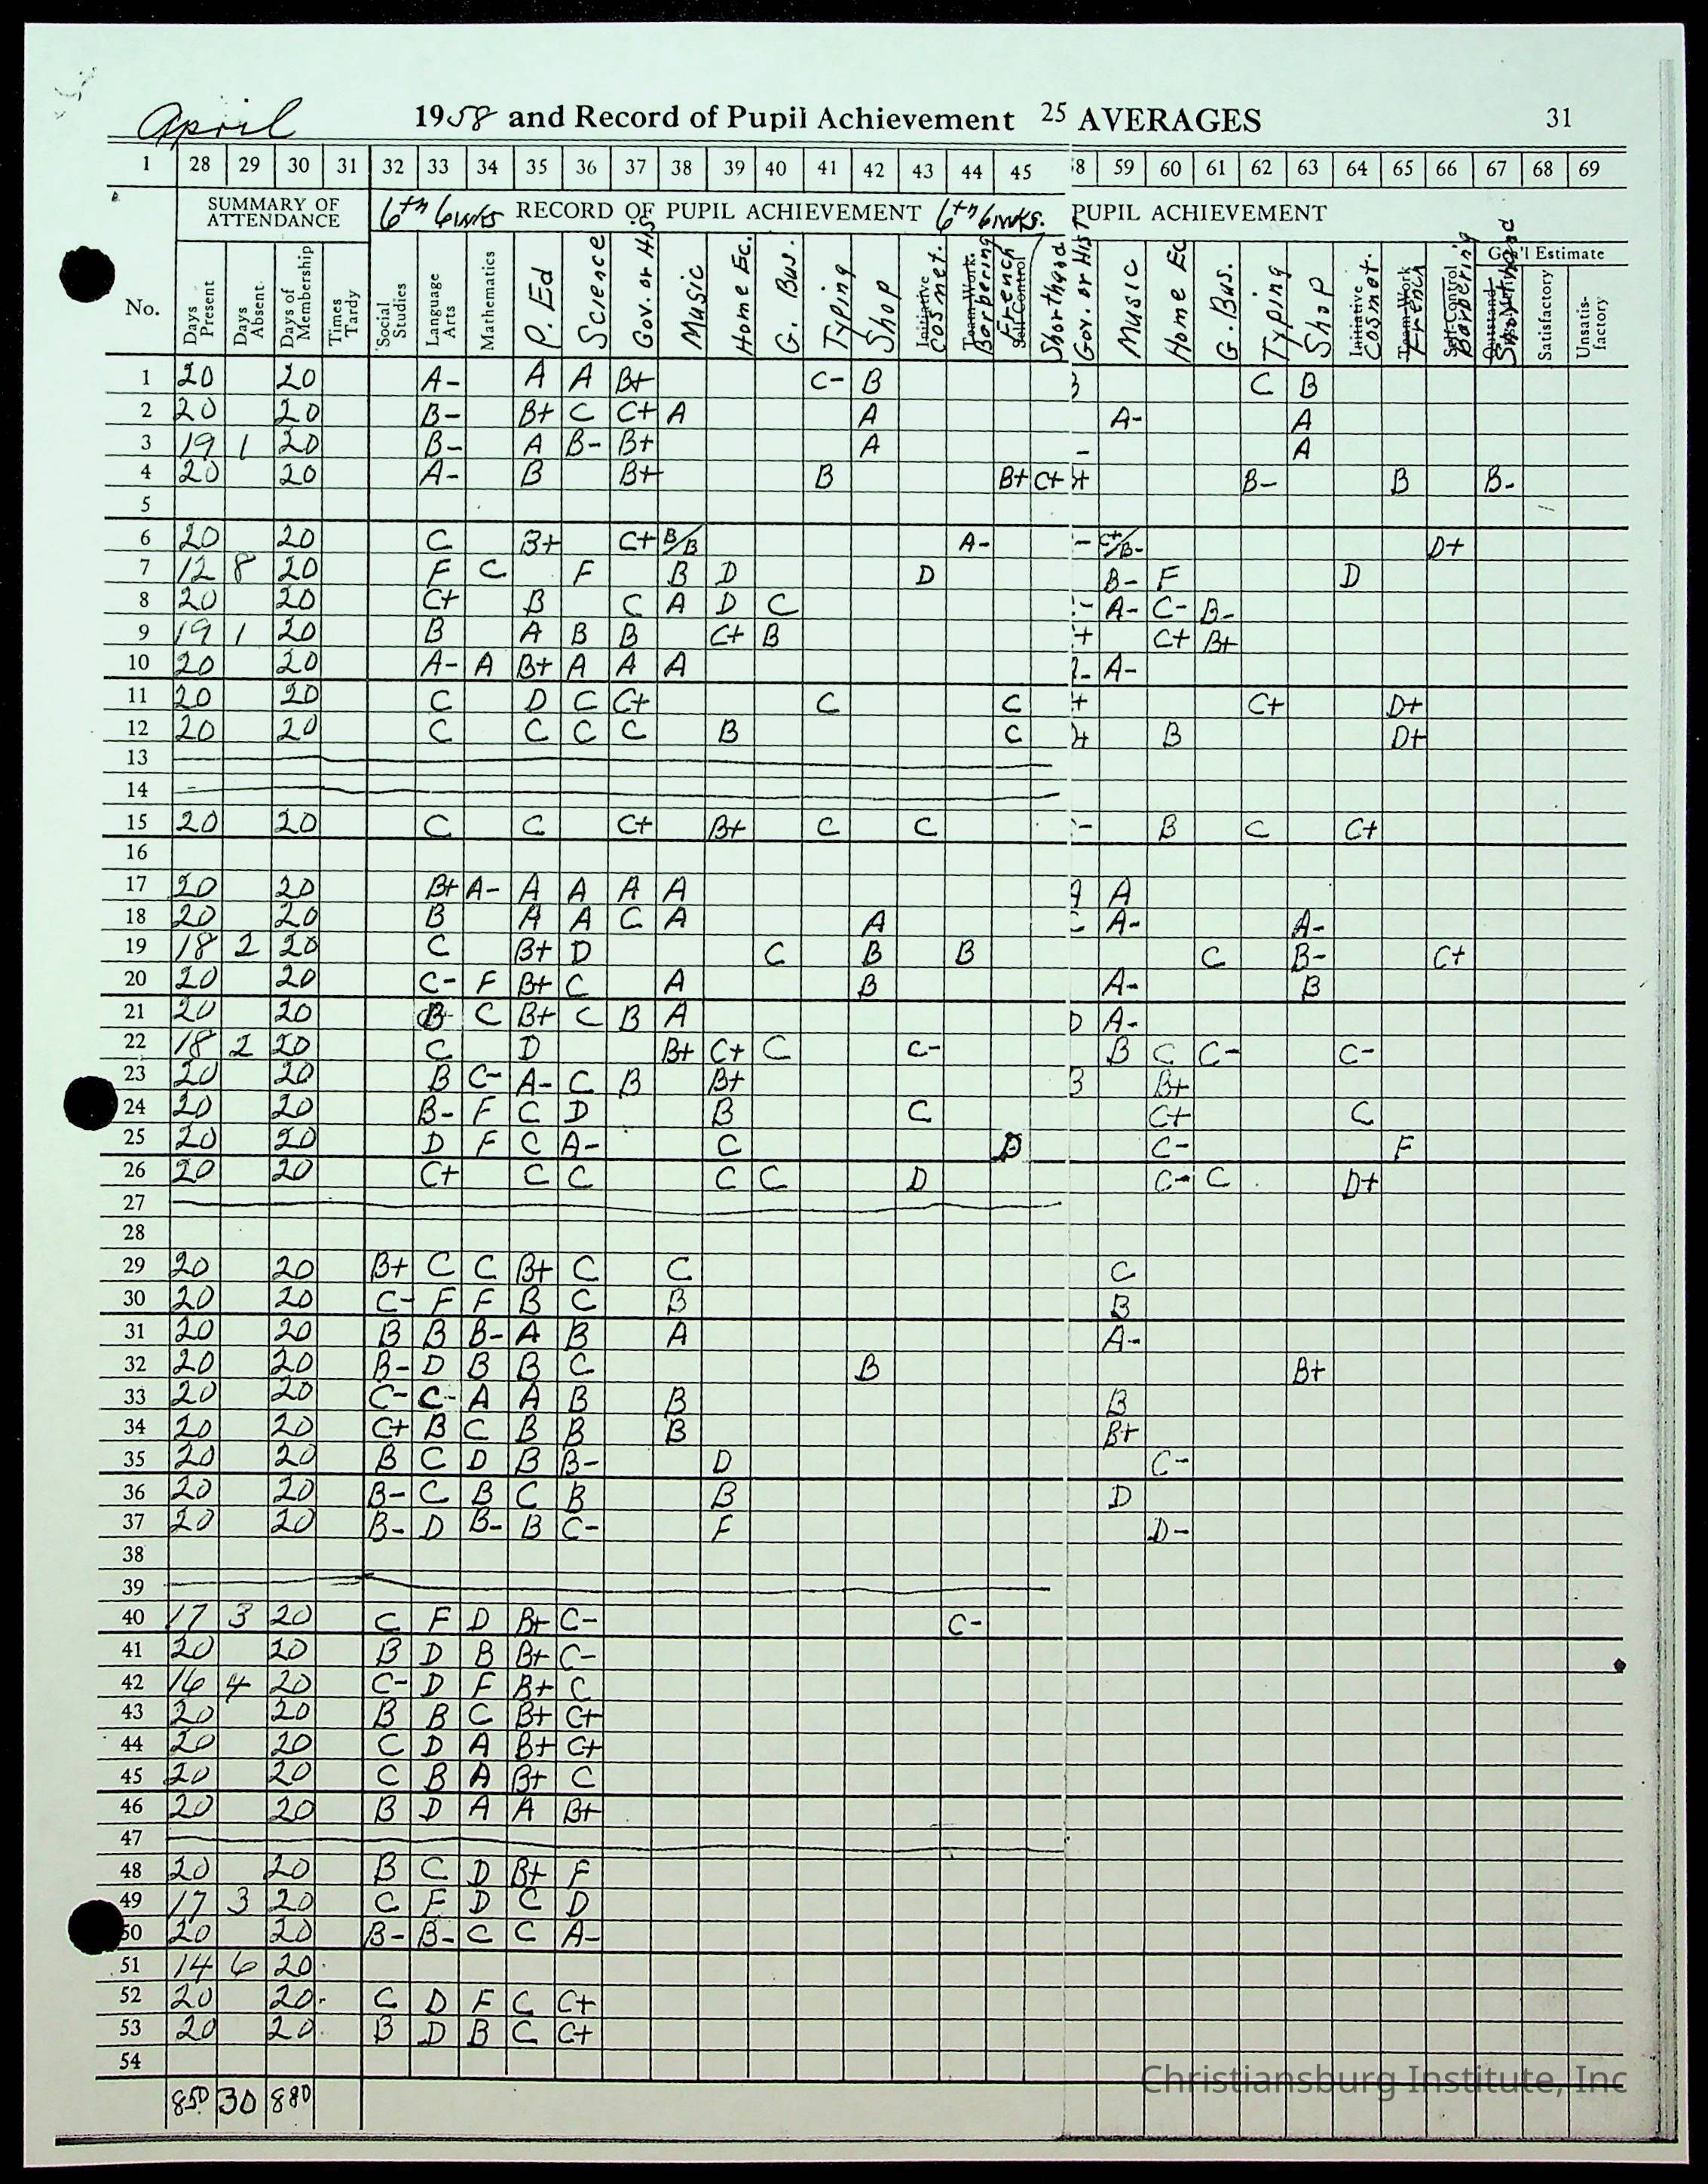 April 1958 and Record of Pupil Achievement 25 AVERAGES 31
1 28 29 30 31 32 33 34 35 36 37 38 39 40 41 42 43 44 45 58 59 60 61 62 63 64 65 66 67 68 69
SUMMARY OF ATTENDANCE 6th 6 wks RECORD OF PUPIL ACHIEVEMENT 6th 6 wks. PUPIL ACHIEVEMENT
Gen'l Estimate
No. Days Present Days Absent Days of Membership Times Tardy Social Studies Language Arts Mathematics P. Ed Science Gov. or His Music Home Ec. G. Bus. Typing Shop Initiative Cosmet. Team Work Barbering French Self Control Shorthand Gov. or Hist Music Home Ec G. Bus. Typing Shop Initiative Cosmet. Team Work French Self-Control Barbering Shorthand Satisfactory Unsatisfactory
1 20 20 A- A A B+ C- B C B
2 20 20 B- B+ C C+ A A A- A
3 19 1 20 B- A B- B+ A - A
4 20 20 A- B B+ B B+ C+ + B- B B-
5
6 20 20 C B+ C+ B/B A- - C+/B- D+
7 12 8 20 F C F B D D B- F D
8 20 20 C+ B C A D C - A- C- B-
9 19 1 20 B A B B C+ B + C+ B+
10 20 20 A- A B+ A A A - A-
11 20 20 C D C C+ C C + C+ D+
12 20 20 C C C C B C + B D+
13
14
15 20 20 C C C+ B+ C C - B C C+
16
17 20 20 B+ A- A A A A A A
18 20 20 B A A C A A C A- A-
19 18 2 20 C B+ D C B B C B- C+
20 20 20 C- F B+ C A B A- B
21 20 20 B C B+ C B A D A-
22 18 2 20 C D B+ C+ C C- B C C- C-
23 20 20 B C- A- C B B+ B B+
24 20 20 B- F C D B C C+ C
25 20 20 D F C A- C D C- F
26 20 20 C+ C C C C D C- C D+
27
28
29 20 20 B+ C C B+ C C C
30 20 20 C- F F B C B B
31 20 20 B B B- A B A A-
32 20 20 B- D B B C B B+
33 20 20 C- C- A A B B B
34 20 20 C+ B C B B B B+
35 20 20 B C D B B- D C-
36 20 20 B- C B C B B D
37 20 20 B- D B- B C- F D-
38
39
40 17 3 20 C F D B+ C- C-
41 20 20 B D B B+ C-
42 16 4 20 C- D F B+ C
43 20 20 B B C B+ C+
44 20 20 C D A B+ C+
45 20 20 C B A B+ C
46 20 20 B D A A B+
47
48 20 20 B C D B+ F
49 17 3 20 C F D C D
50 20 20 B- B- C C A-
51 14 6 20
52 20 20 C D F C C+
53 20 20 B D B C C+
54
850 30 880
Christiansburg Institute, Inc